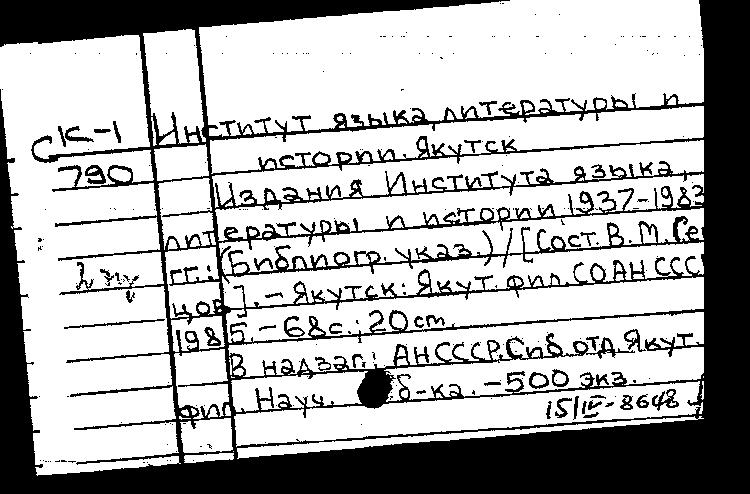 СК-1 Институт языка, литературы и
790 истории. Якутск
Издания Института языка,
литературы и истории, 1937-1983
гг.: (Библиогр. указ.) / [Сост. В. М. Се
цов]. - Якутск: Якут. фил. СО АН ССС
1985. - 68 с.; 20 cm.
В надзаг.: АН СССР. Сиб. отд. Якут.
фил. Науч. б-ка. - 500 экз.
15/IV-8648